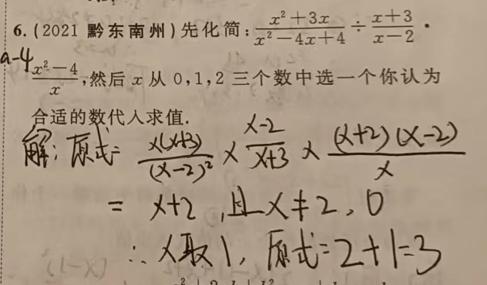 6. (2021 黔东南州)先化简: (x²+3x)/(x²-4x+4) ÷ (x+3)/(x-2) ·
a-4
(x²-4)/x ,然后 x 从 0,1,2 三个数中选一个你认为
合适的数代入求值.
解: 原式= x(x+3)/(x-2)² × (x-2)/(x+3) × (x+2)(x-2)/x
= x+2 , 且 x≠2, 0
∴ x取1, 原式=2+1=3